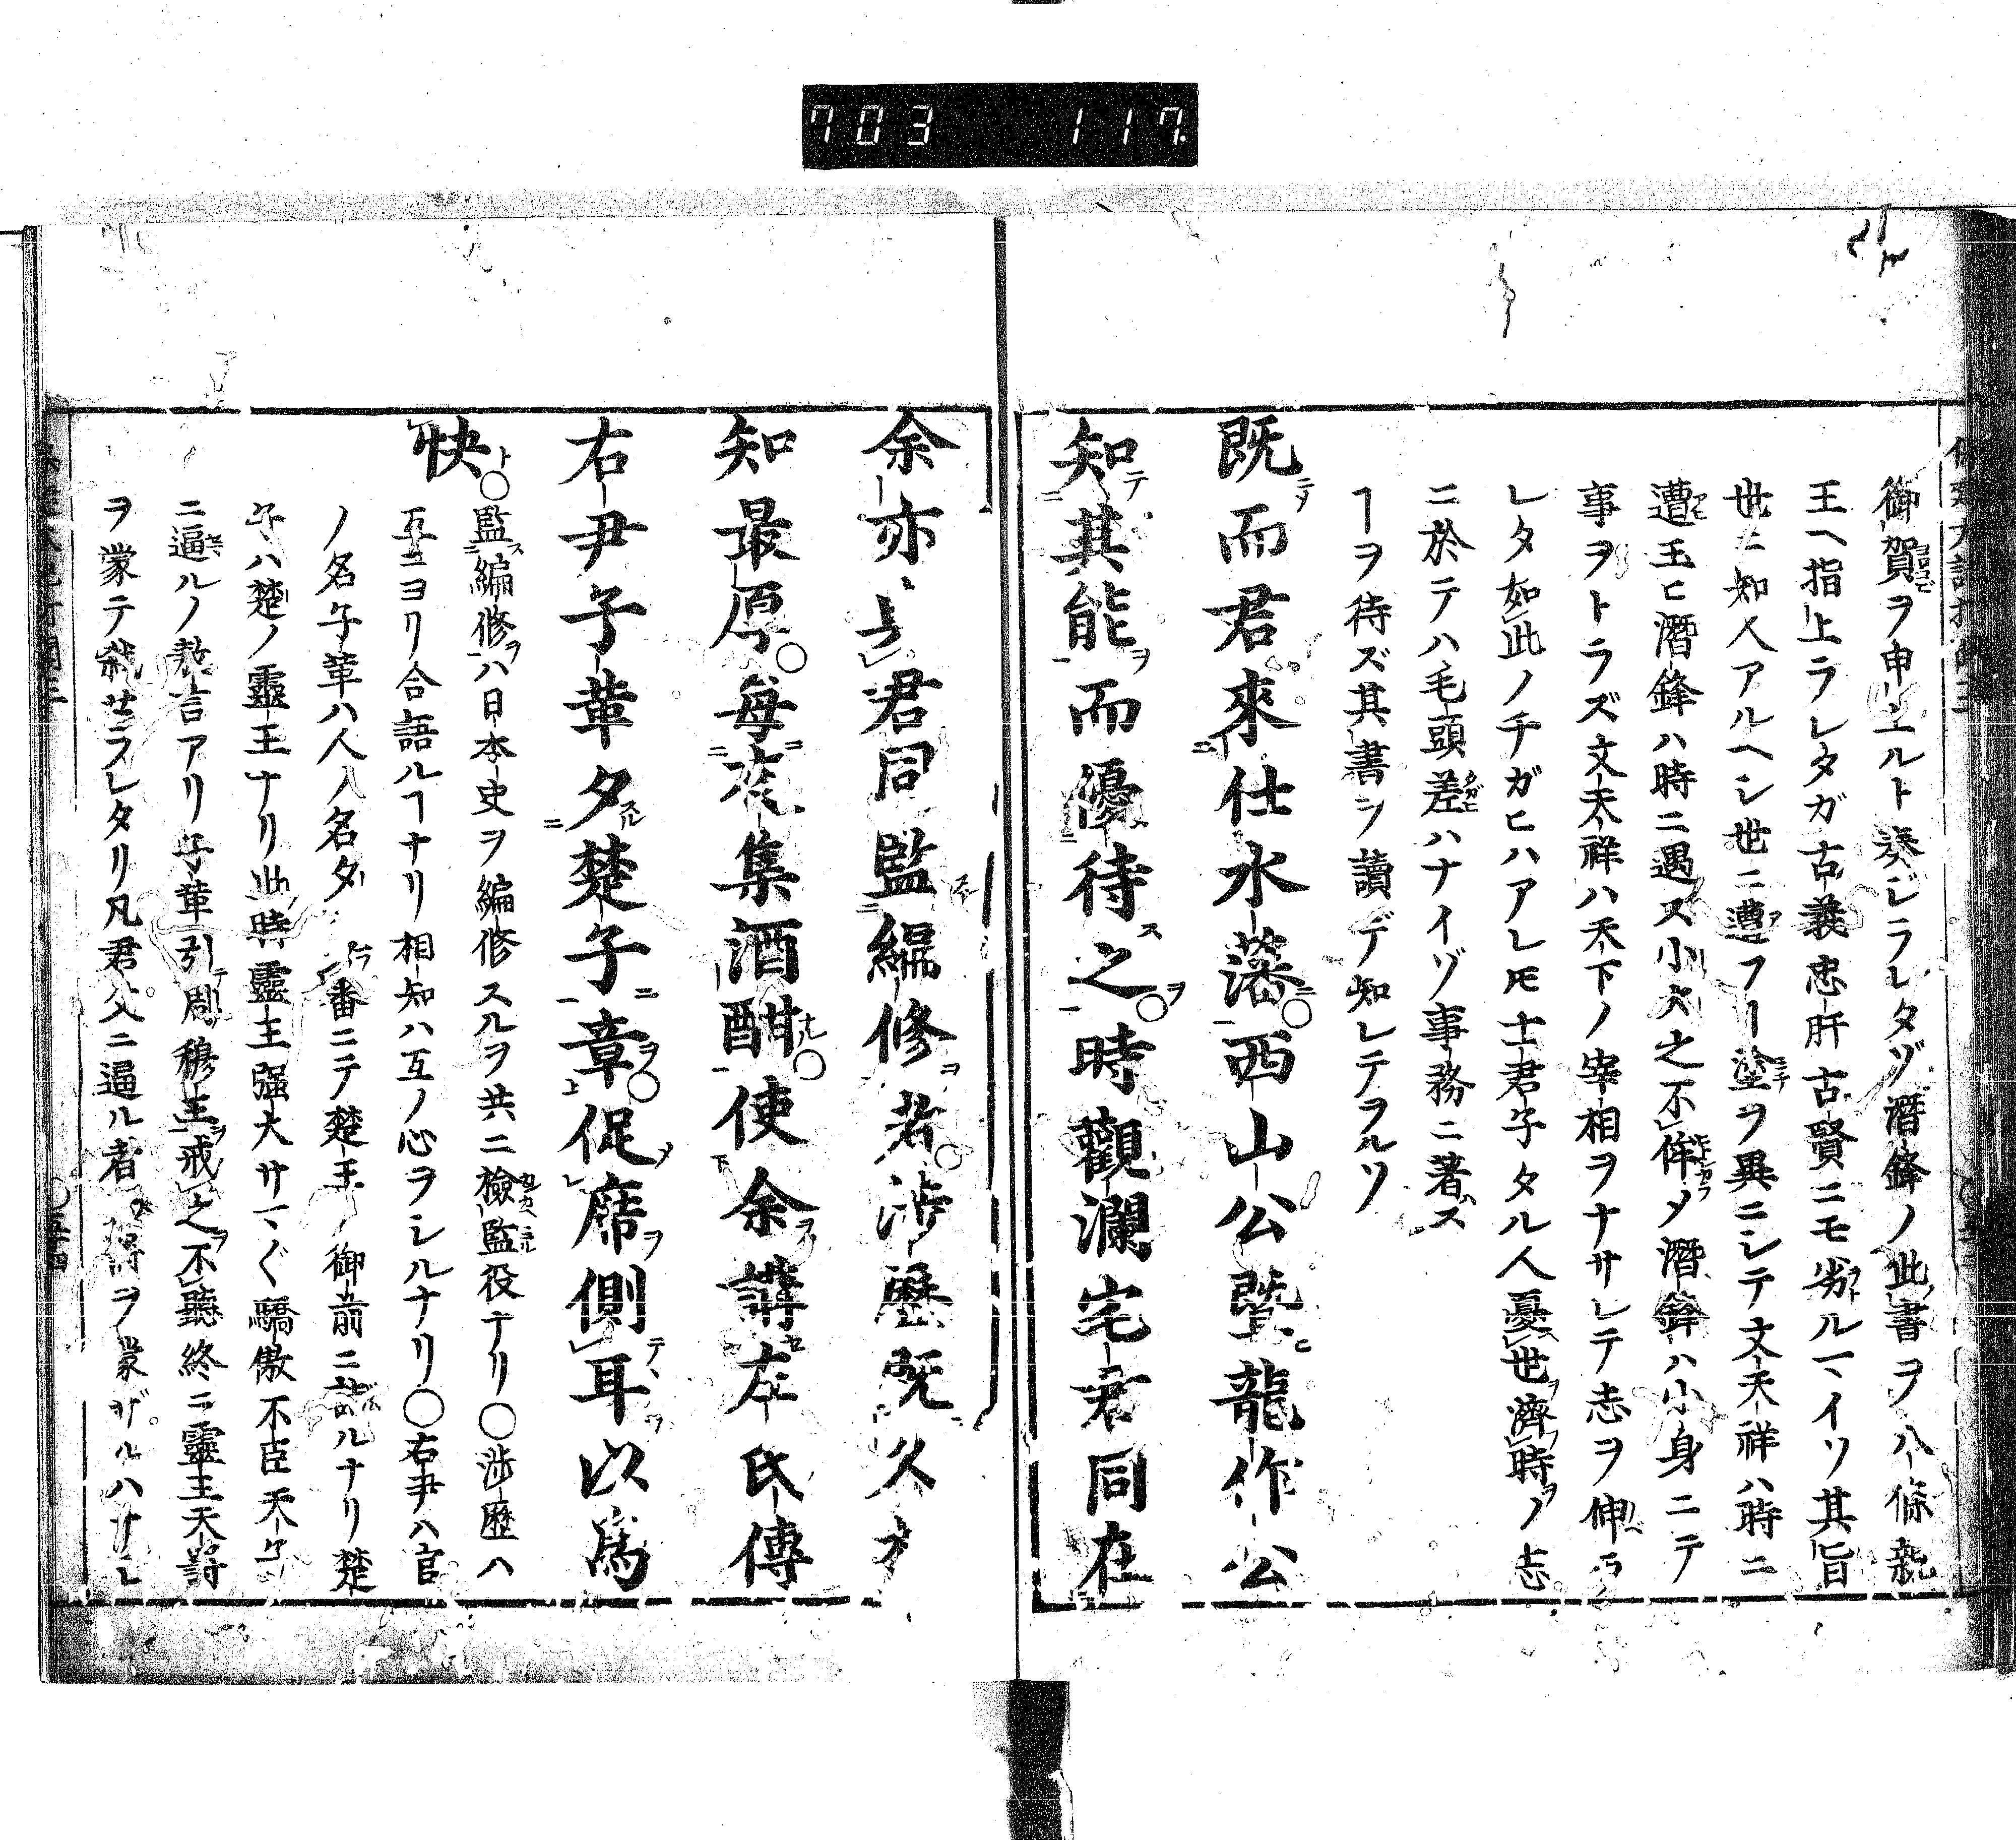 703 117
御賀ヲ申上ルト奏ゼラレタゾ潛鋒ノ此書ヲ八條親
王ヘ指上ラレタガ古義忠肝古賢ニモ劣ルヿイソ其旨
世ニ知人アルヘシ世ニ遭フ塗ヲ異ニシテ文天祥ハ時ニ
遭玉ヒ潛鋒ハ時ニ遇ス小大之不侔メ潛鋒ハ小身ニテ
事ヲトラズ文天祥ハ天下ノ宰相ヲナサレテ志ヲ伸
レタ如此ノチガヒハアレ𪜈士君子タル人憂世濟時ノ志
ニ於テハ毛頭差ハナイゾ事務ニ著ス
ヿヲ待ズ其書ヲ讀デ知レテヲルソ
既而君來仕水藩西山公曁龍作公
知其能而優待之時觀瀾宅君同在
余亦與君同監編修者涉歷既久方
知最厚每夜集酒酣使余講左氏傳
右尹子革夕楚子章促席側耳以爲
快○監編修ハ日本史ヲ編修スルヲ共ニ檢監役ナリ○涉歷ハ
互ニヨリ合語ルヿナリ相知ハ互ノ心ヲシルナリ○右尹ハ官
ノ名子革ハ人ノ名夕ハ番ニテ楚王ノ御前ニ ルナリ楚
子ハ楚ノ靈王ナリ此時靈王强大サマ〴〵驕傲不臣天子
ニ逼ルノ教言アリ子革引周穆王戒之不聽終ニ靈王天罸
ヲ蒙テ弑セラレタリ凡君父ニ逼ル者 罸ヲ蒙ザルハナシ